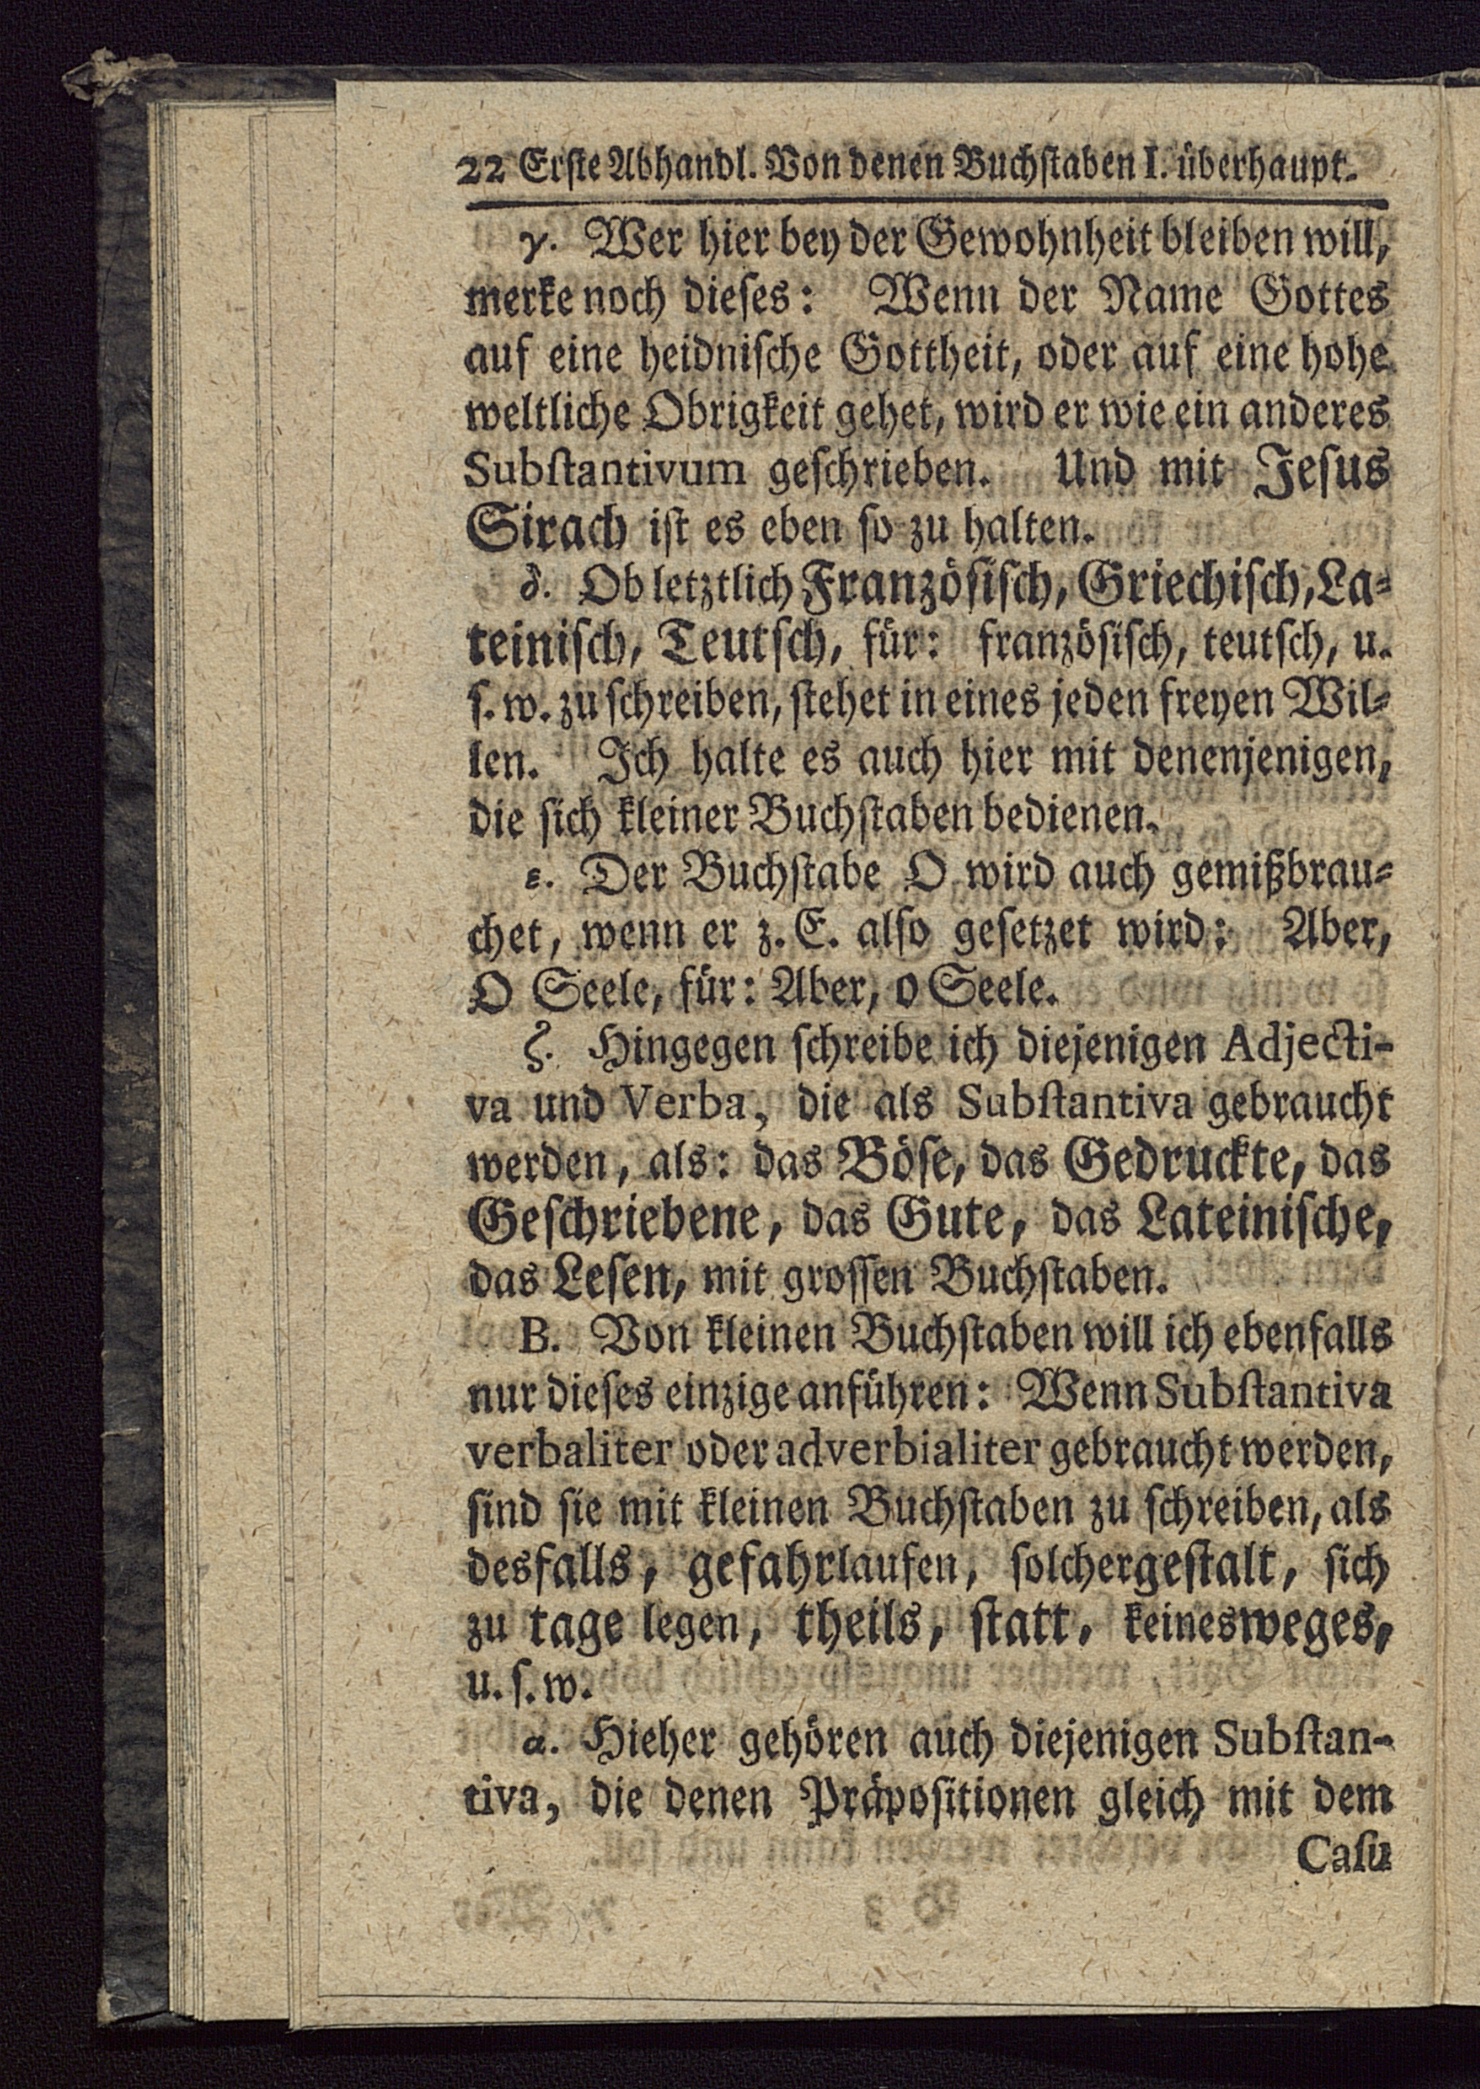 22 Erſte Abhandl. Von denen Buchſtaben I. überhaupt.
γ. Wer hier bey der Gewohnheit bleiben will,
merke noch dieſes: Wenn der Name Gottes
auf eine heidniſche Gottheit, oder auf eine hohe
weltliche Obrigkeit gehet, wird er wie ein anderes
Subſtantivum geſchrieben. Und mit Jeſus
Sirach iſt es eben ſo zu halten.
δ. Ob letztlich Franzöſiſch, Griechiſch, La-
teiniſch, Teutſch, für: franzöſiſch, teutſch, u.
ſ. w. zu ſchreiben, ſtehet in eines jeden freyen Wil-
len. Ich halte es auch hier mit denenjenigen,
die ſich kleiner Buchſtaben bedienen.
ε. Der Buchſtabe O wird auch gemißbrau-
chet, wenn er z. E. alſo geſetzet wird: Aber,
O Seele, für: Aber, o Seele.
ζ. Hingegen ſchreibe ich diejenigen Adjecti-
va und Verba, die als Subſtantiva gebraucht
werden, als: das Böſe, das Gedruckte, das
Geſchriebene, das Gute, das Lateiniſche,
das Leſen, mit groſſen Buchſtaben.
B. Von kleinen Buchſtaben will ich ebenfalls
nur dieſes einzige anführen: Wenn Subſtantiva
verbaliter oder adverbialiter gebraucht werden,
ſind ſie mit kleinen Buchſtaben zu ſchreiben, als
desfalls, gefahrlaufen, ſolchergeſtalt, ſich
zu tage legen, theils, ſtatt, keinesweges,
u. ſ. w.
α. Hieher gehören auch diejenigen Subſtan-
tiva, die denen Präpoſitionen gleich mit dem
Caſu